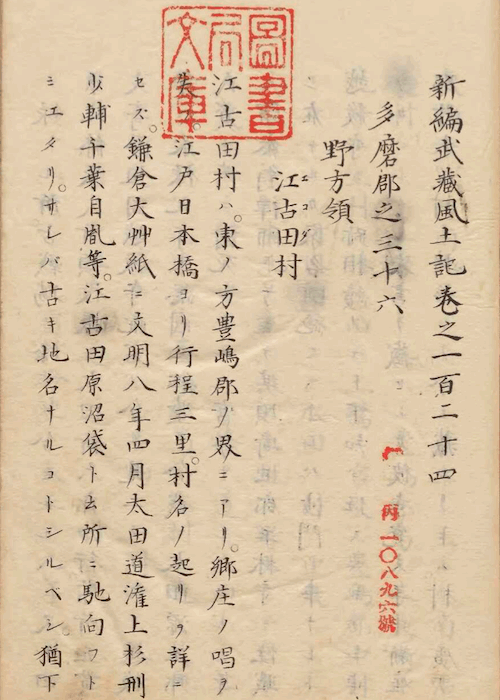 新編武藏風土記卷之一百二十四
多磨郡之三十六
野方領
江古田村
エコダ
江古田村ハ。東ノ方豊嶋郡ノ界ニアリ。郷庄ノ唱ヲ
失フ。江戸日本橋ヨリ行程三里。村名ノ起リヲ詳ニ
セズ。鎌倉大艸紙ニ文明八年四月太田道灌上杉刑
少輔千葉自胤等。江古田原沼袋ト云所ニ馳向フト
ミエタリ。サレバ古キ地名ナルコトシルベシ。猶下
圖書局文庫
丙一〇八九六號